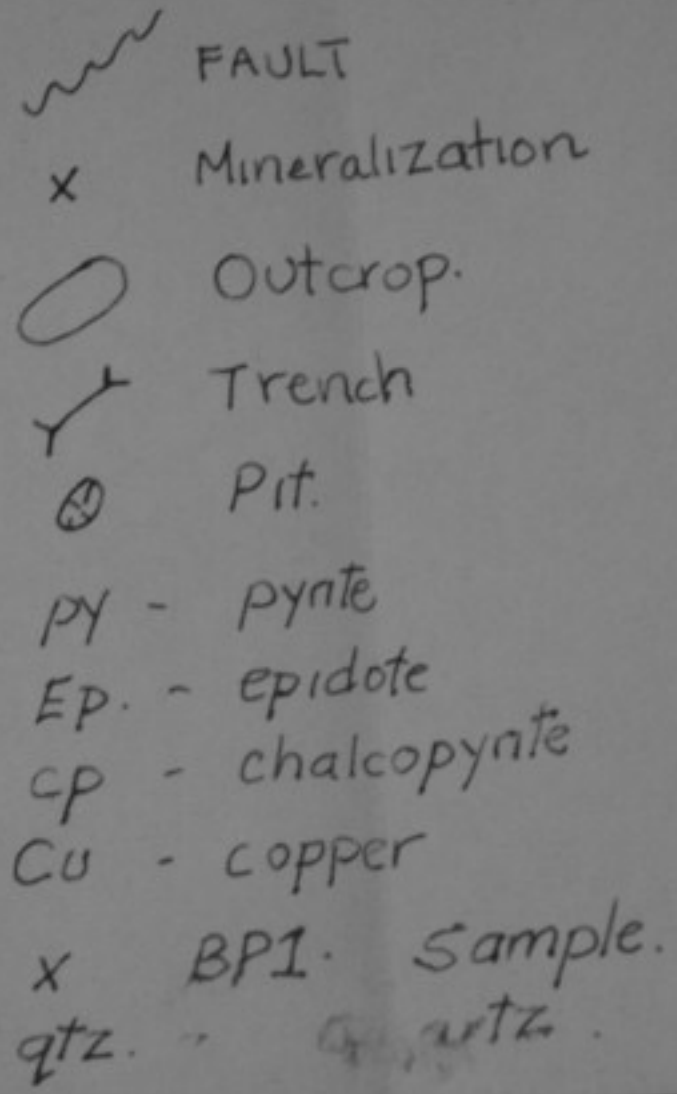 FAULT
x Mineralization
Outcrop.
Trench
Pit.
py - pyrite
Ep. - epidote
cp - chalcopyrite
Cu - copper
x BP1. Sample.
qtz. - Quartz.